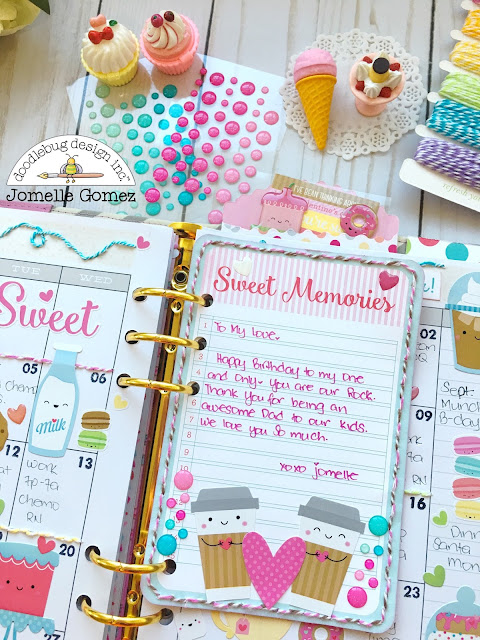 doodlebug design inc.™
Jomelle Gomez
Sweet Memories
1 To My Love
3 Happy Birthday to my one
4 and only. You are our Rock.
5 Thank You for being an
6 awesome Dad to our kids.
7 We love you so much.
xoxo jomelle
TUE WED
Sweet
05 06
Milk
12 13
work
7p-7a
Chemo
RN
20
27
02
09
Sept.
Munch
B-day
16
Dinn
Santa
mon
23